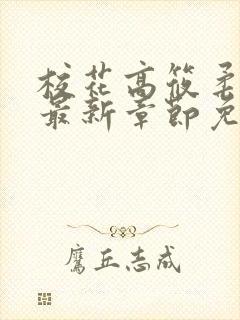 校花高筱柔
最新章节免
鹰丘志成